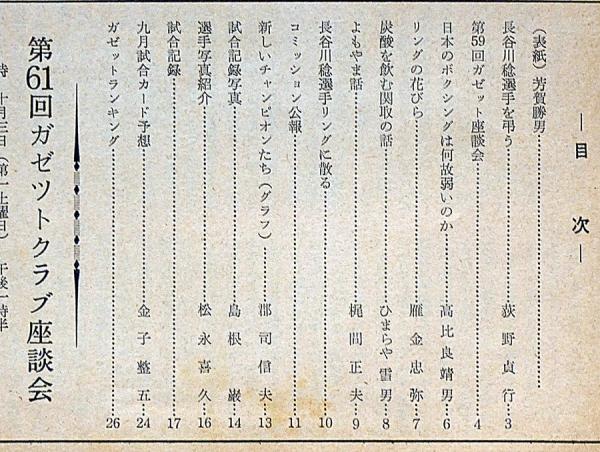 ―目次―
（表紙）芳賀勝男
長谷川稔選手を弔う……荻野貞行…3
第59回ガゼット座談会……4
日本のボクシングは何故弱いのか……高比良靖男…6
リングの花びら……雁金忠弥…7
炭酸を飲む関取の話……ひまらや雪男…8
よもやま話……梶間正夫…9
長谷川稔選手リングに散る……10
コミッション公報……11
新しいチャンピオンたち（グラフ）……郡司信夫…13
試合記録写真……島根巌…14
選手写真紹介……松永喜久…16
試合記録……17
九月試合カード予想……金子整五…24
ガゼットランキング……26
第61回ガゼットクラブ座談会
時 十月三日（第一土曜日） 午後一時半